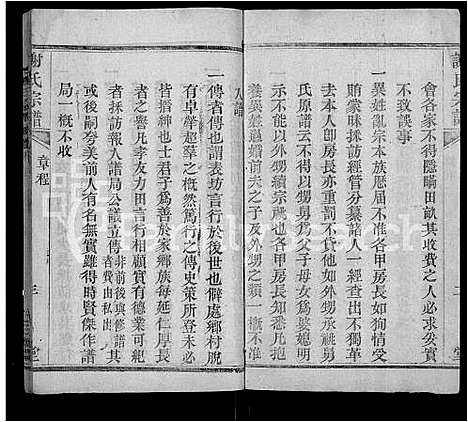 謝氏宗譜
會各家不得隱瞞田畝其收費之人必求妥實
不致誤事
一異姓亂宗本族應屆不也各甲房長如狥情受
賄蒙昧採訪經管分纂諸人一經查出不獨革
去本人卽房長亦重罰不貸他如外甥承祧舅
氏原譜云不以外甥男爲子房母女爲婆媳明
示不能以外甥續宗祧也各甲房長知悉凡抱
養異姓過婚前夫之子及外甥之類一概不准
入譜
一傳者傳也謂表坊言行於後世也僻處鄉村脫
有卓犖超羣之概然篤行之傳史策所登未必
皆搢紳也士君子於家鄉族每延仁厚長
者之譽凡孝友力田言行相顧實有德業可紀
者採訪報入譜局公議立傳者非前後與修譜其
或後嗣兮美前人有名無實雖得時賢傑作譜費由私出
局一概不收
謝氏宗譜
章程
三
堂
二
堂